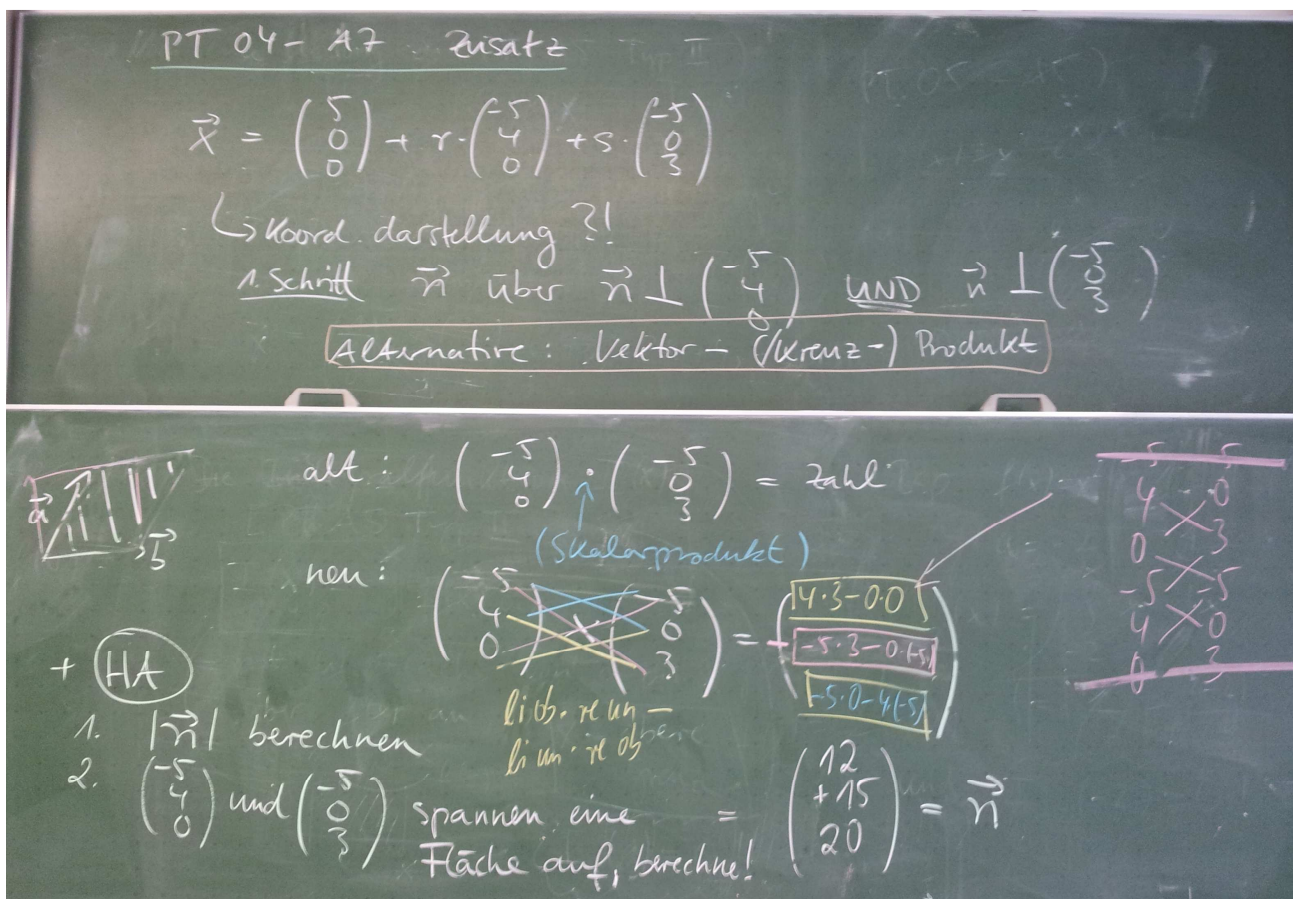 PT 04 - A7 Zusatz
x⃗ = (5 0 0) + r · (-5 4 0) + s · (-5 0 3)
↳ Koord. darstellung ?!
1. Schritt n⃗ über n⃗ ⊥ (-5 4 0) UND n⃗ ⊥ (-5 0 3)
Alternative: Vektor - (/Kreuz-) Produkt
a⃗
b⃗
alt: (-5 4 0) · (-5 0 3) = Zahl
(Skalarprodukt)
neu: (-5 4 0) × (-5 0 3) = (4·3-0·0 - -5·3-0·(-5) -5·0-4·(-5))
li ob · re un -
li un · re ob
= (12 +15 20) = n⃗
-5 -5
4 0
0 3
-5 -5
4 0
0 3
+ HA
1. |n⃗| berechnen
2. (-5 4 0) und (-5 0 3) spannen eine
Fläche auf, berechne!